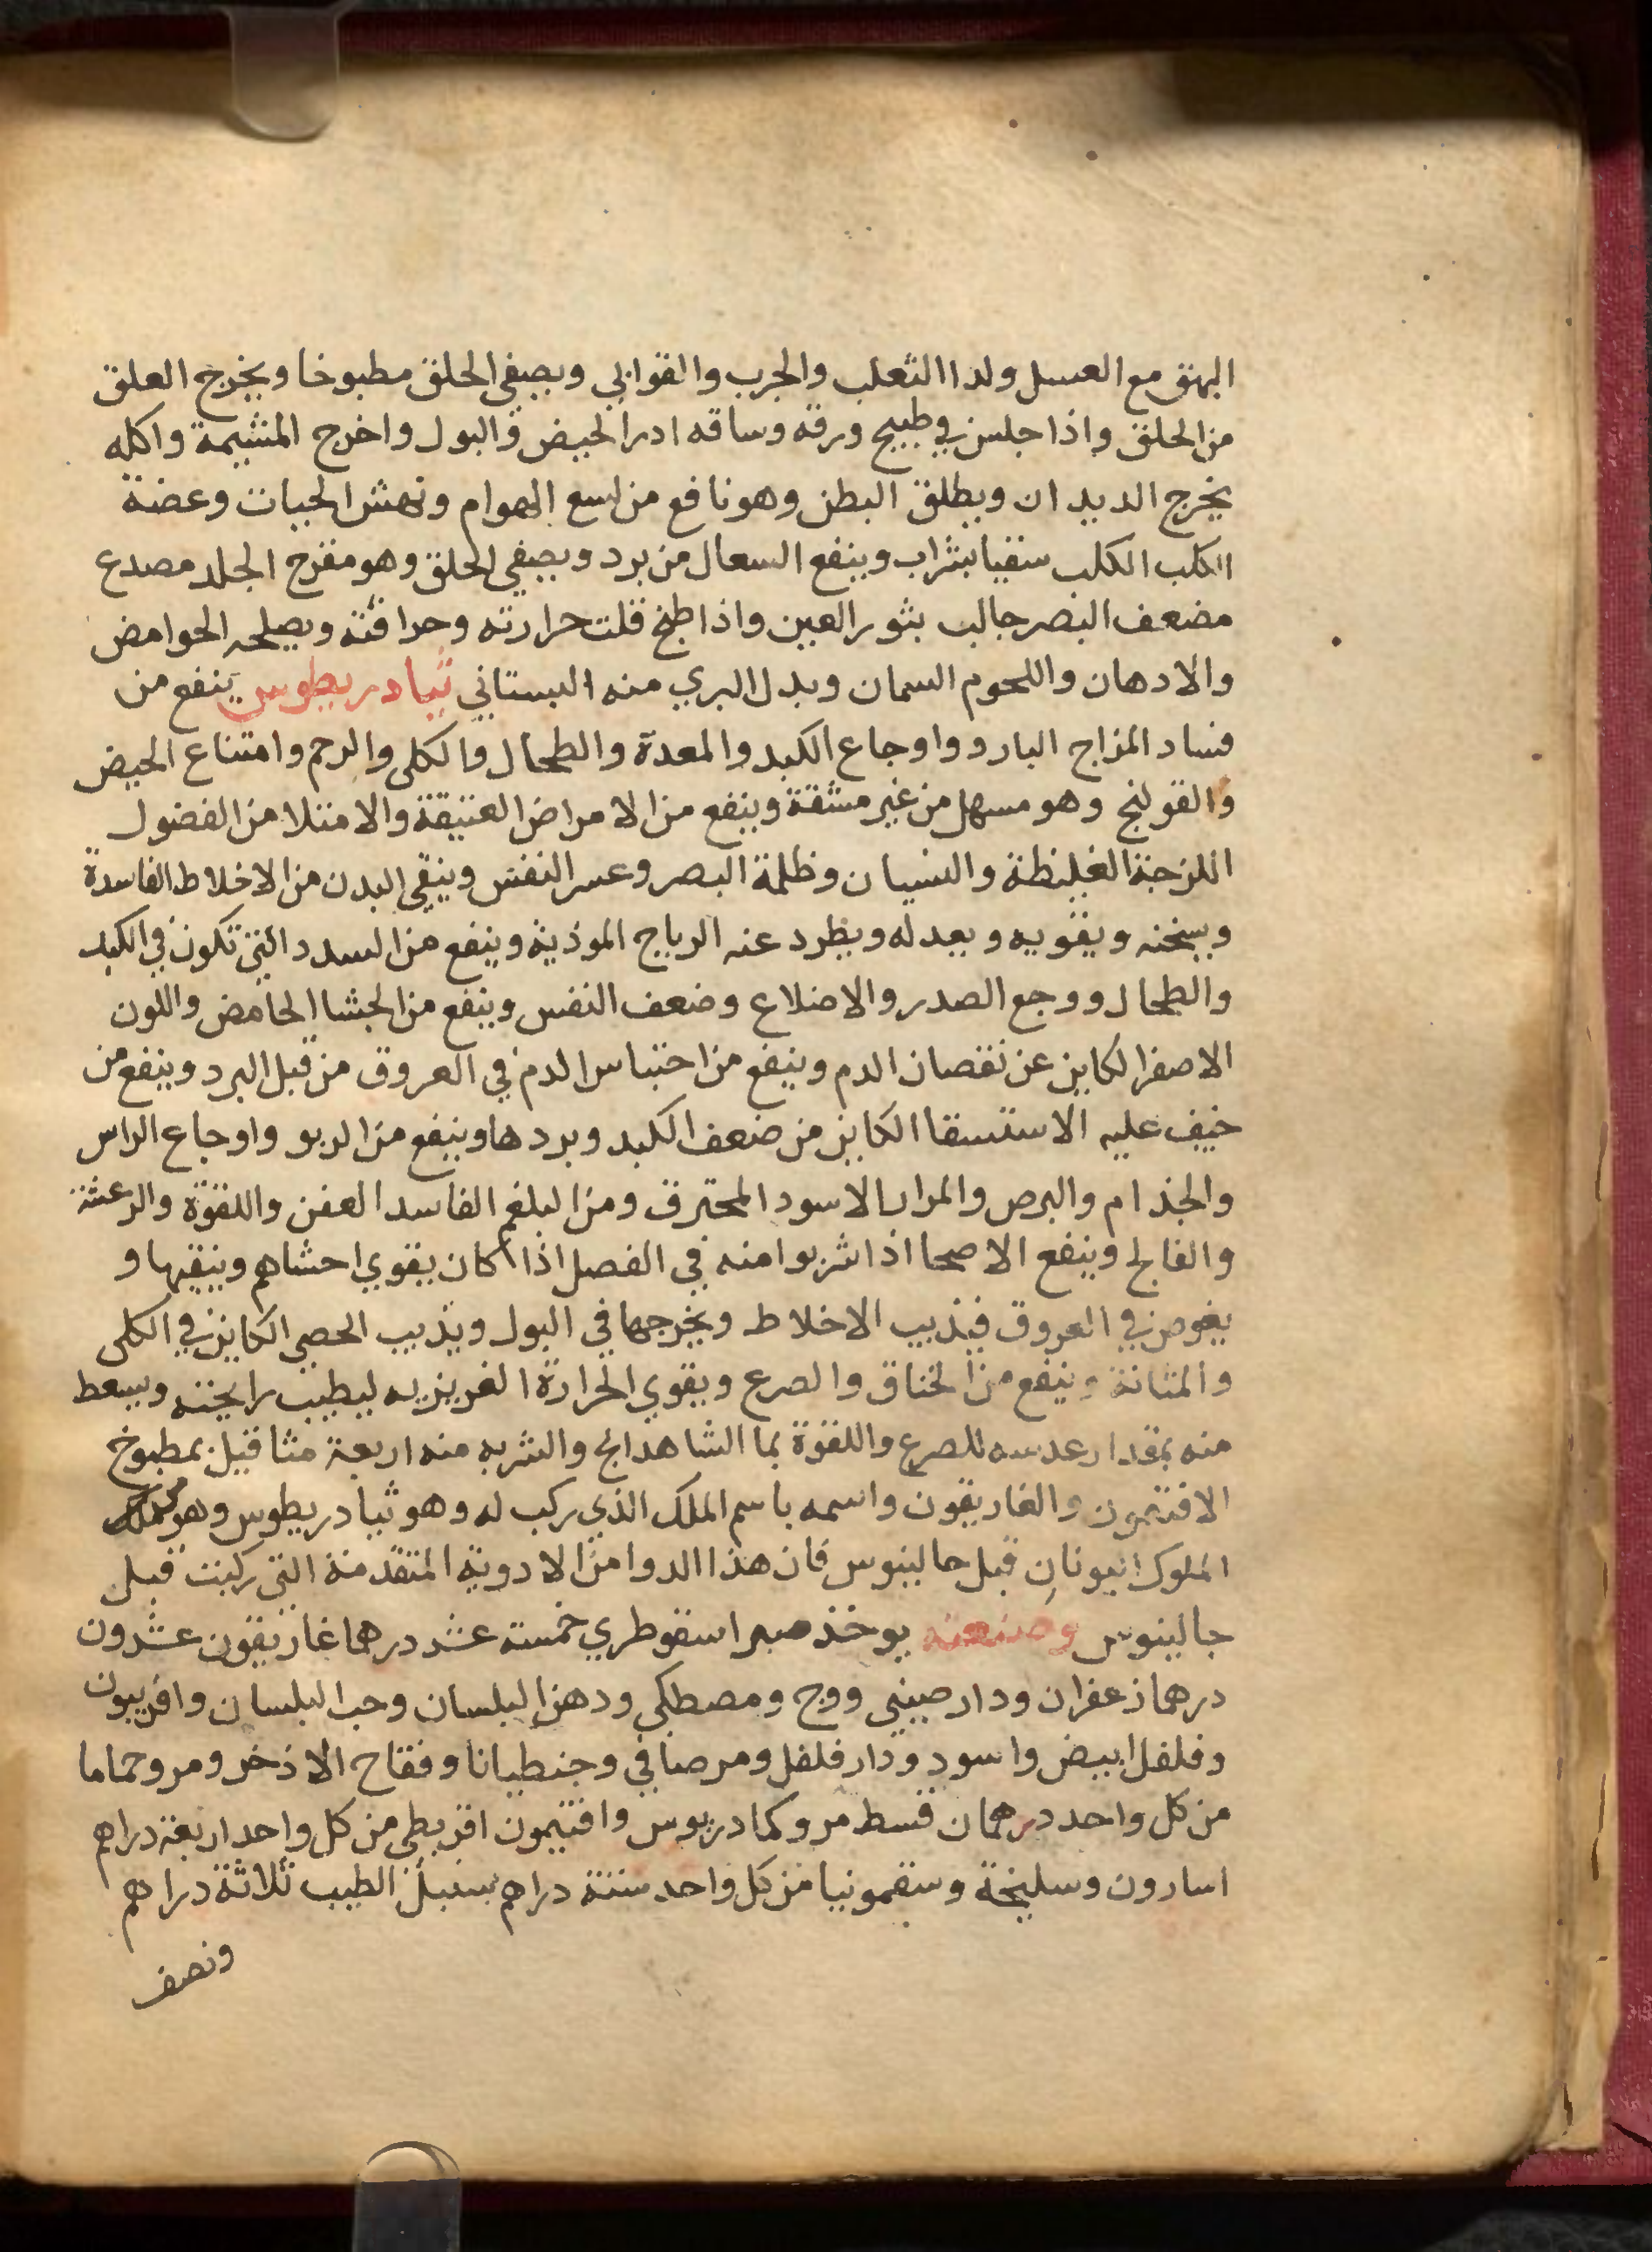 البهق مع العسل ولدا الثعلب والجرب والقوابي ويصفي الحلق مطبوخا ويخرج العلق
من الحلق واذا جلس في طبيخ ورقه وساقه ادر الحيض والبول واخرج المشيمة واكله
يخرج الديدان ويطلق البطن وهو نافع من لسع الهوام ونهش الحيات وعضة
الكلب الكلب سقيا بشراب وينفع السعال من برد ويصفي الحلق وهو مقرح الجلد مصدع
مضعف البصر جالب بثور العين واذا طبخ قلت حرارته وحرافته ويصلحه الحوامض
والادهان واللحوم السمان وبدل البري منه البستاني ثيادريطوس ينفع من
فساد المزاج البارد واوجاع الكبد والمعدة والطحال والكلى والرحم وامتناع الحيض
والقولنج وهو مسهل من غير مشقة وينفع من الامراض العتيقة والامتلا من الفضول
اللزجة الغليظة والنسيان وظلمة البصر وعسر النفس وينقي البدن من الاخلاط الفاسدة
ويسخنه ويقويه ويعدله ويطرد عنه الرياح الموذية وينفع من السدد التي تكون في الكبد
والطحال ووجع الصدر والاضلاع وضعف النفس وينفع من الجشا الحامض واللون
الاصفر الكاين عن نقصان الدم وينفع من احتباس الدم في العروق من قبل البرد وينفع من
خيف عليه الاستسقا الكاين من ضعف الكبد وبردها وينفع من الربو واوجاع الراس
والجذام والبرص والمرار الاسود المحترق ومن البلغم الفاسد العفن واللقوة والرعشة
والفالج وينفع الاصحا اذا شربوا منه في الفصل اذا كان يقوي احشاهم وينقيها و
يغوص في العروق فيذيب الاخلاط ويخرجها في البول ويذيب الحصى الكاين في الكلى
والمثانة وينفع من الخناق والصرع ويقوي الحرارة الغريزيه ليطيب رايحته ويسعط
منه بمقدار عدسه للصرع واللقوة بما الشاهدانج والشربه منه اربعة مثاقيل بمطبوخ
الافتيمون والغاريقون واسمه باسم الملك الذي ركب له وهو ثيادريطوس وهو
الملوك اليونان قبل جالينوس فان هذا الدوا من الادوية المتقدمة التي ركبت قبل
جالينوس وصنعته يوخذ صبر اسقوطري خمسته عشر درهما غاريقون عشرون
درهما زعفران ودارصيني ووج ومصطكي ودهن البلسان وحب البلسان وافربيون
وفلفل ابيض واسود ودارفلفل ومر صافي وجنطيانا وفقاح الاذخر ومر وحماما
من كل واحد درهمان قسط مر وكمادريوس وافتيمون اقريطي من كل واحد اربعة دراهم
اسارون وسليخة وسقمونيا من كل واحد ستة دراهم سنبل الطيب ثلاثة دراهم
ونصف